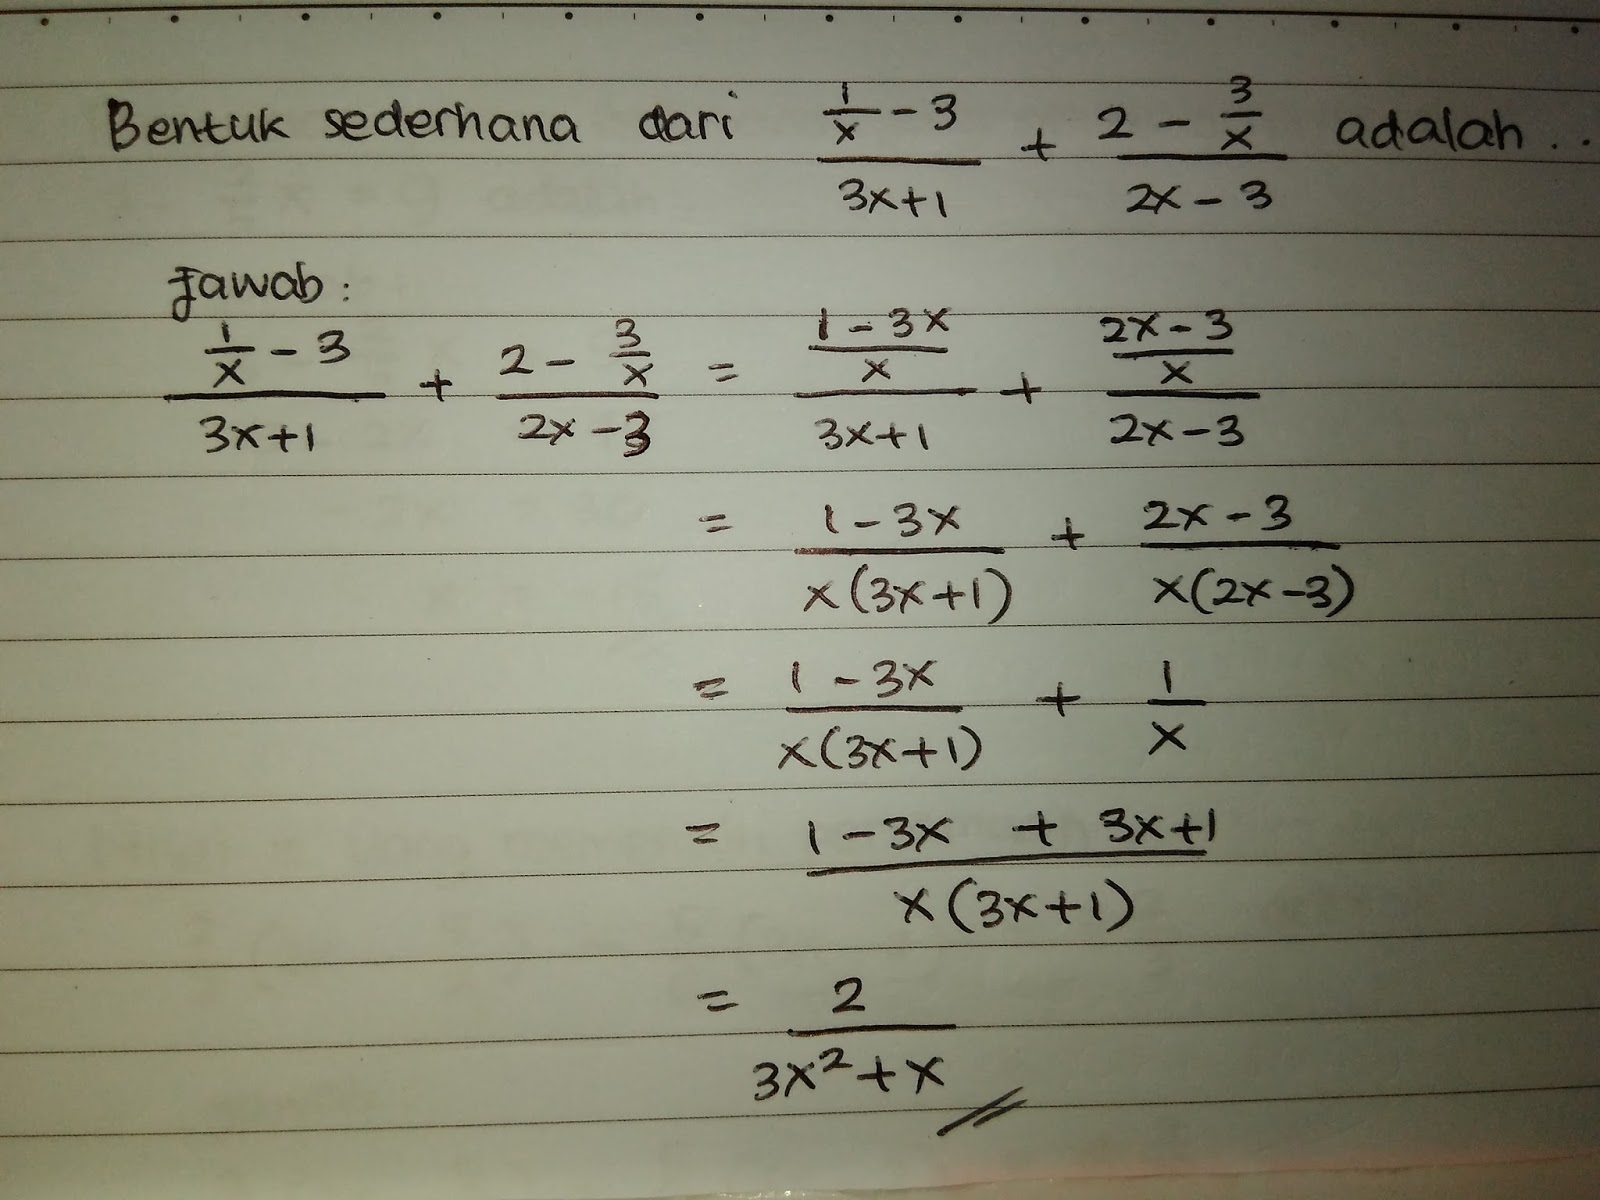 Bentuk sederhana dari (1/x - 3)/(3x+1) + (2 - 3/x)/(2x - 3) adalah ..
Jawab :
(1/x - 3)/(3x+1) + (2 - 3/x)/(2x - 3) = ((1 - 3x)/x)/(3x+1) + ((2x - 3)/x)/(2x - 3)
= (1 - 3x)/(x(3x+1)) + (2x - 3)/(x(2x - 3))
= (1 - 3x)/(x(3x+1)) + 1/x
= (1 - 3x + 3x+1)/(x(3x+1))
= 2/(3x² + x)